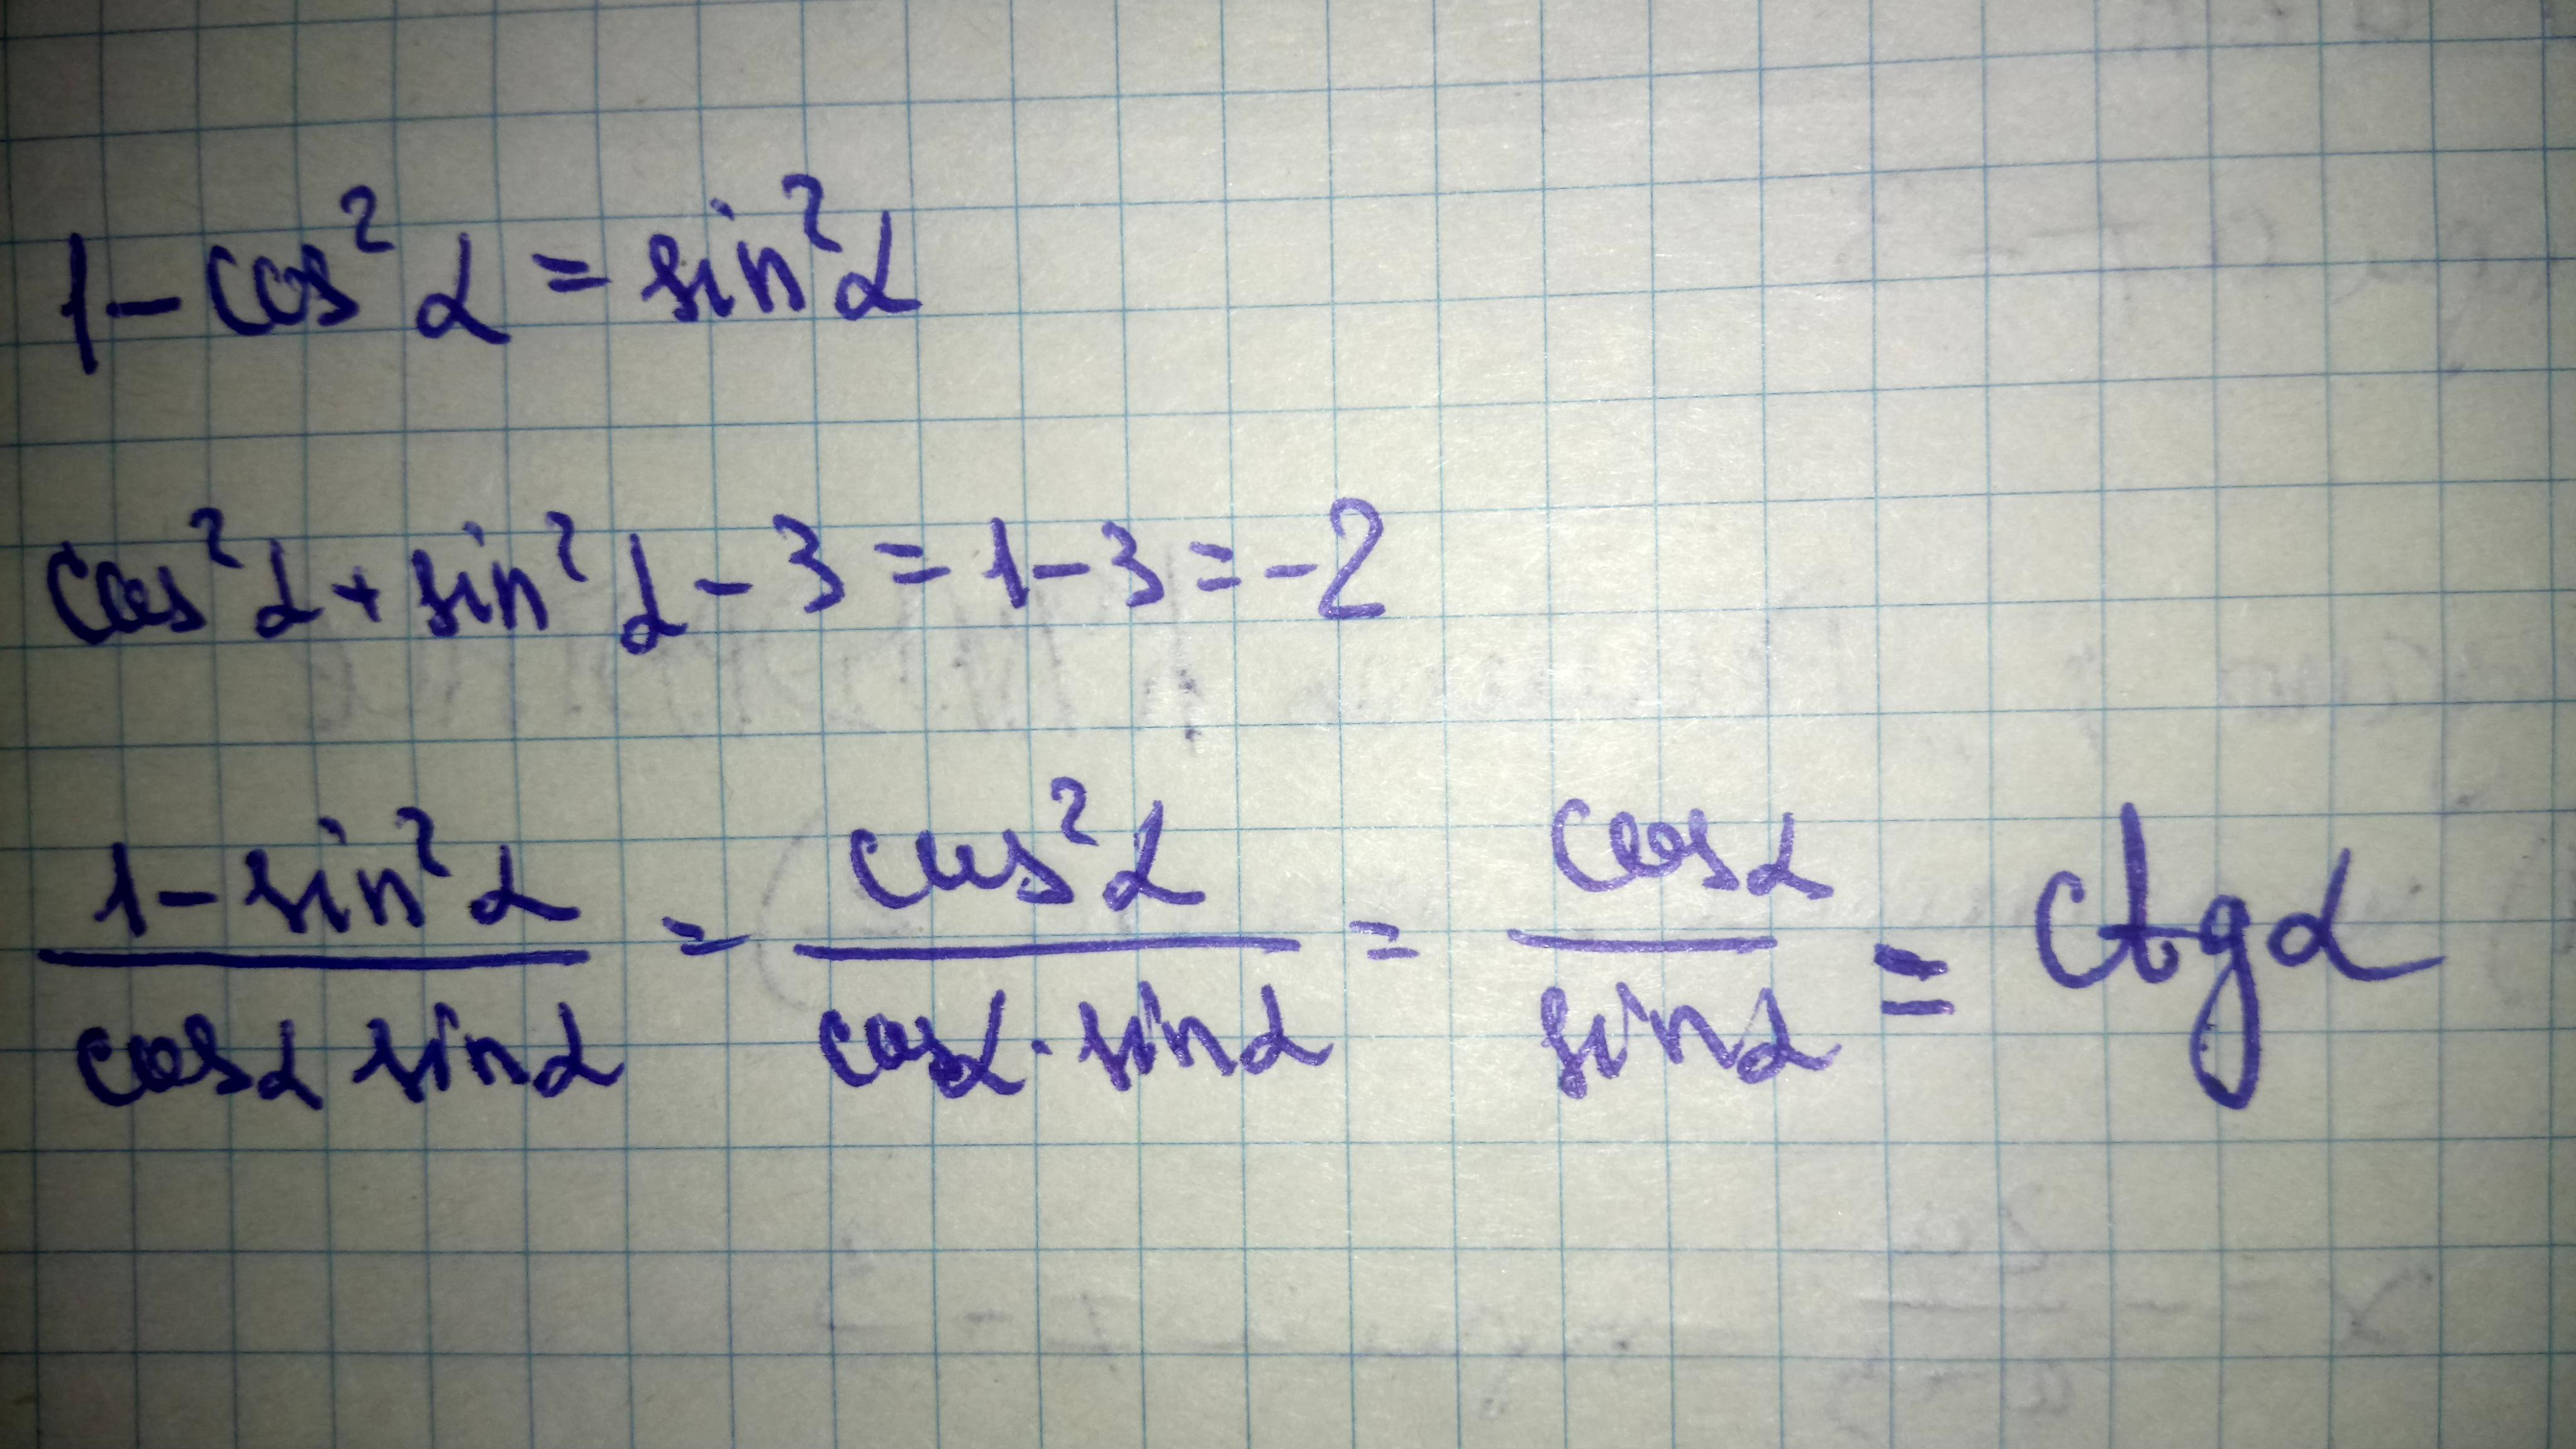 1 - cos² α = sin² α
cos² α + sin² α - 3 = 1 - 3 = -2
(1 - sin² α) / (cos α sin α) = (cos² α) / (cos α · sin α) = (cos α) / (sin α) = ctg α